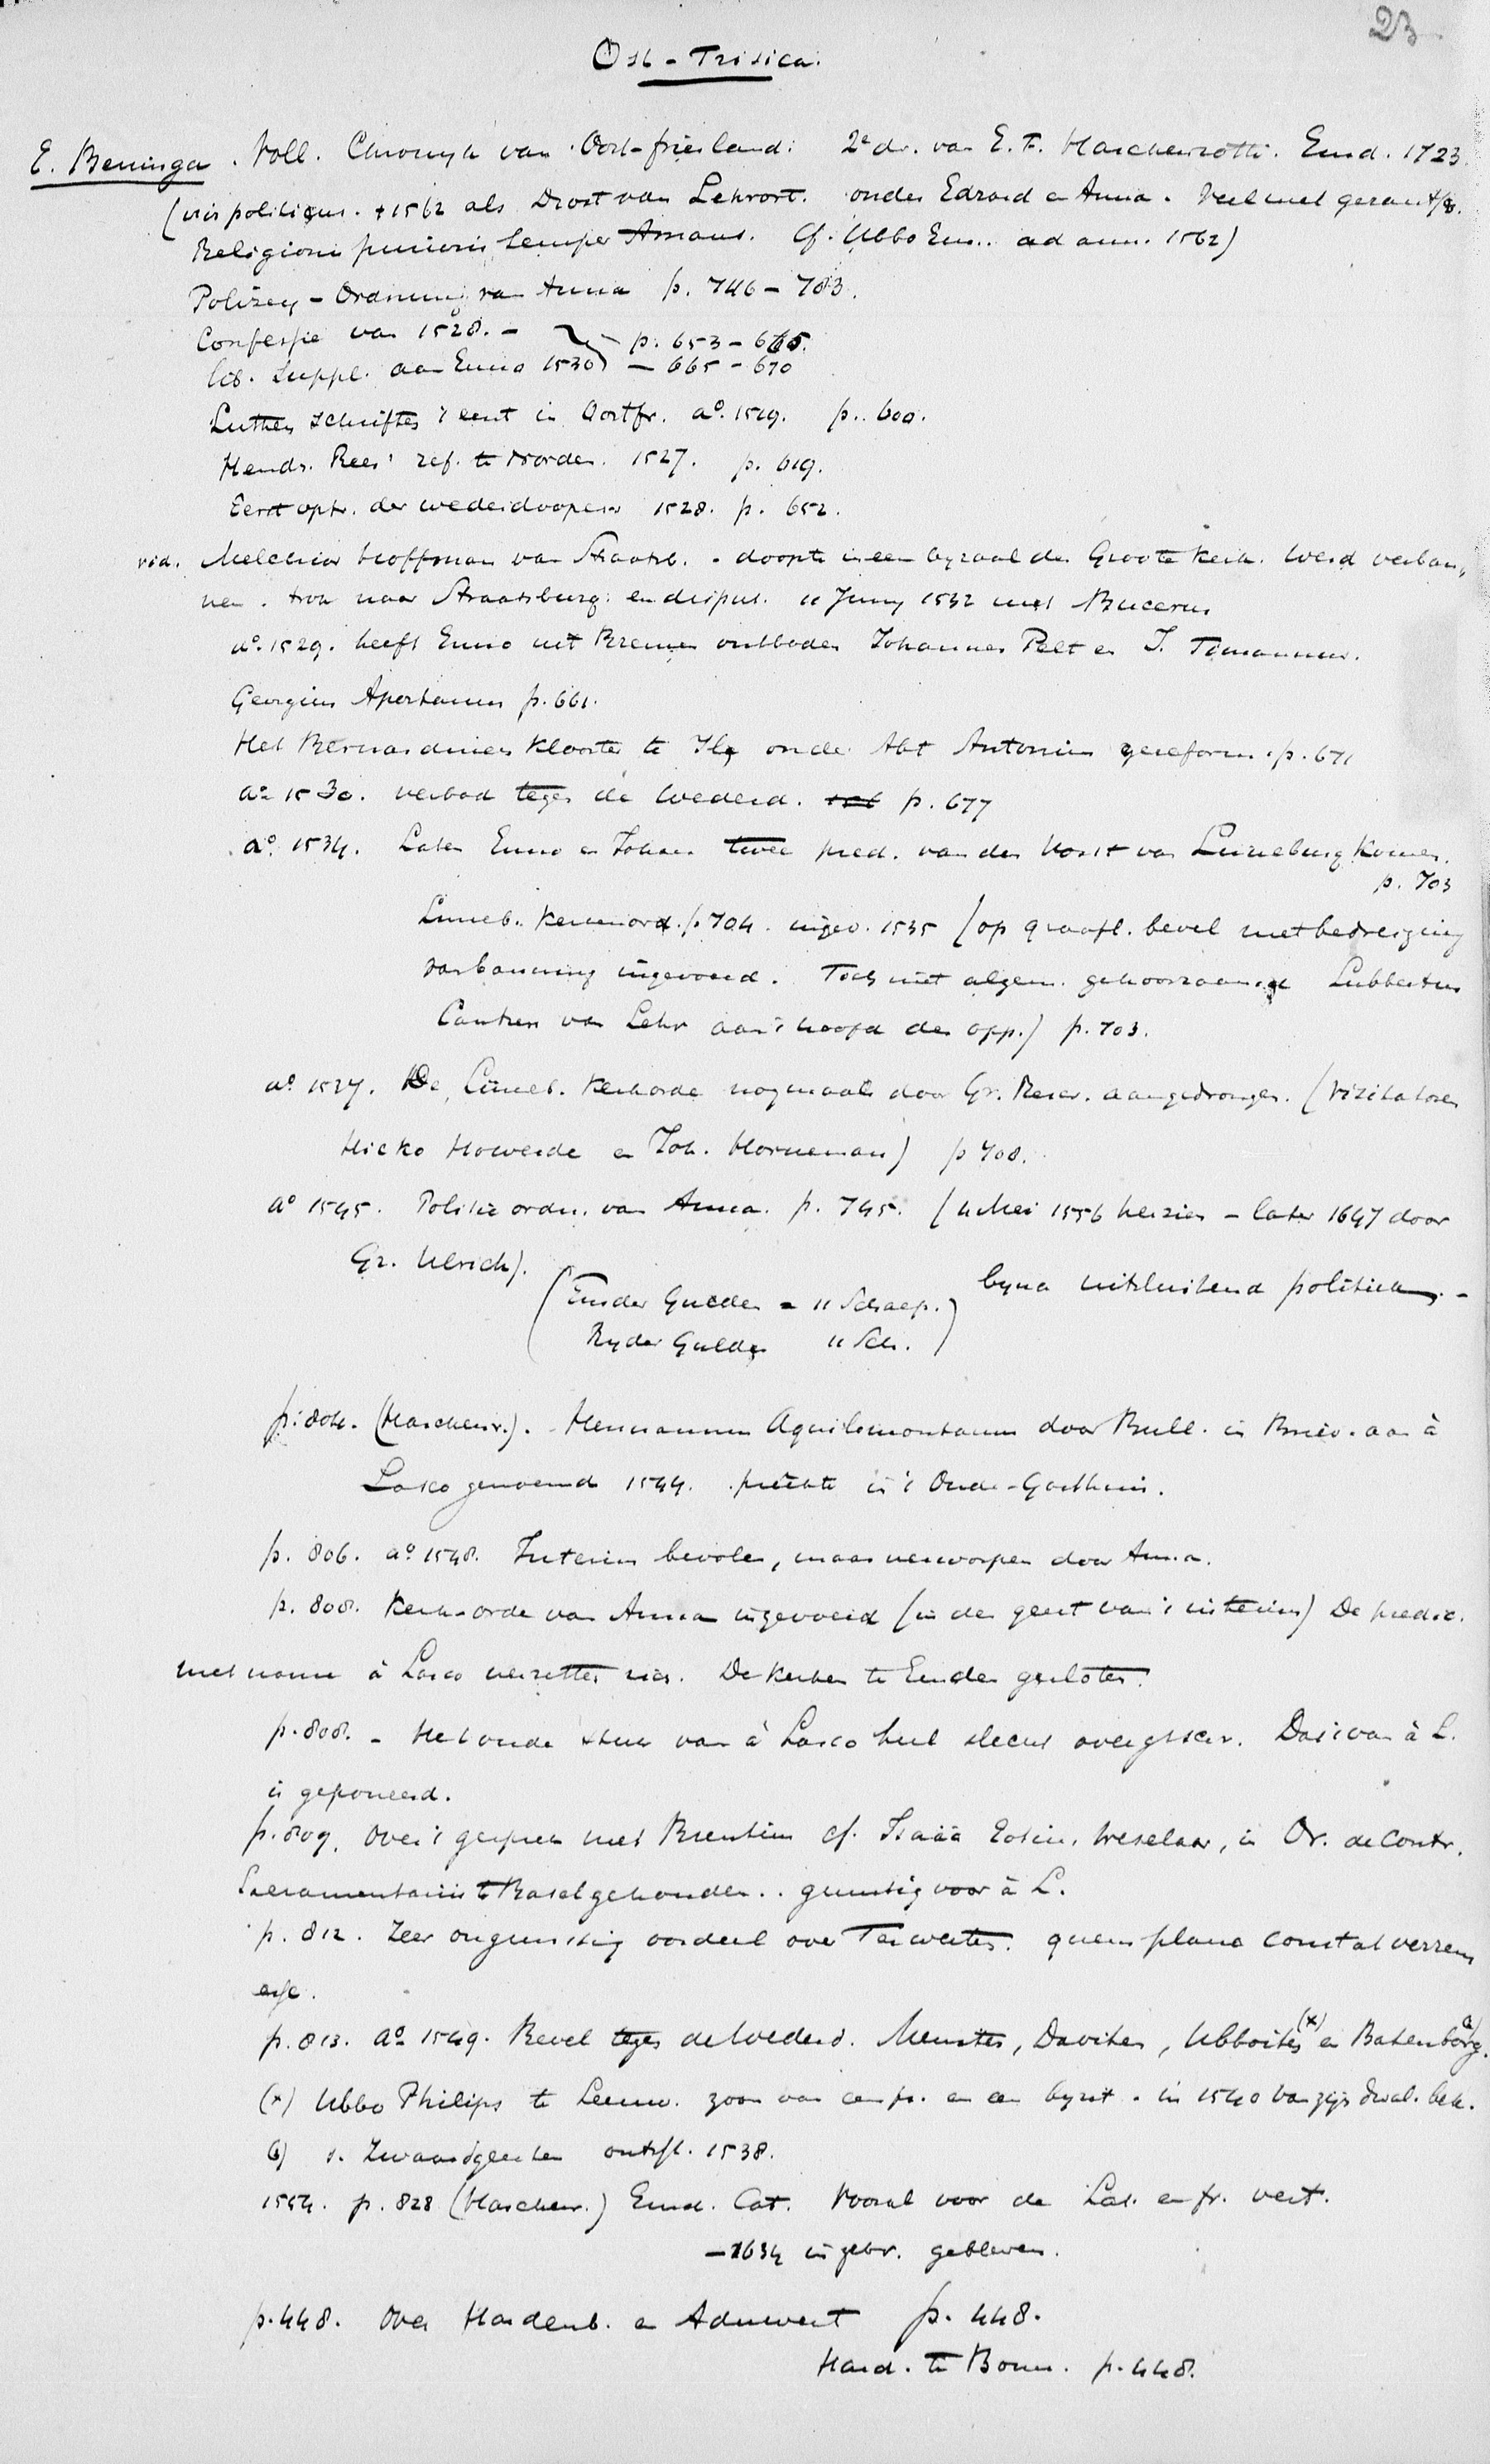 23
Ost-Frisica.
E. Beninga. Voll. Chronyk van Oost-friesland. 2e dr. van E. F. Harckenroth. Emd. 1723.
(vir politicus. †1562 als Drost van Lehrort. onder Edzard en Anna. Veel met gezantsch.
Religionis purioris semper Amans. Cf. Ubbo Em.. ad ann. 1562)
Polizey-Ordnung van Anna p. 746-783.
Confessie van 1528. - p. 653-665.
Suppl. aan Enno 1530) - 665-670
Luthers schriften 't eerst in Oostfr. a°. 1519. p. 600.
Hendr. Rees' ref. te Norden. 1527. p. 619.
Eerst optr. der wederdoopers 1528. p. 652.
vid. Melchior Hoffman van Straatsb. - doopte in een byzaal der Groote Kerk. Werd verban,,
nen. trok naar Straatsburg: en disput. 11 Juny 1532 met Bucerus
a°. 1529. heeft Enno uit Bremen ontboden Johannes Pelt en J. Timannus.
Georgius Aportanus p. 661.
Het Bernardiner Klooster te Ihlo onder Abt Antonius gereform. p. 671
a° 1530. verbod tegen de Wederd. p. 677
a°. 1534. Laten Enno en Johan twee pred. van den Vorst van Luneburg Komen.
p. 703
Luneb. Kerkenord. p. 704. ingev. 1535 (op graafl. bevel met bedreiging
van banning ingevoerd. Toch niet algem. gehoorzaamd. Lubbertus
Cantzen van Lehr aan 't hoofd der opp.) p. 703.
a° 1527. De Luneb. Kerkorde nogmaals door Gr. aangedrongen. (Visitatoren
Hicko Howerde en Joh. Horneman) p 708.
a° 1545. Politie ordn. van Anna. p. 745. (4 Mei 1556 herzien - later 1647 door
Gr. Ulrich).
(Emder Gulden = 11 Schaep.) byna uitsluitend politiek. -
Ryder Gulden 11 Sch.)
p. 804. (Harckenr.). Hermannus Aquilomontanus door Bull. in Briev. aan à
Lasco genoemd 1544. preekte in 't Oude-Gasthuis.
p. 806. a° 1548. Interim bevolen, maar verworpen door Anna.
p. 808. Kerk-orde van Anna ingevoerd (in den geest van 't interim) De predic.
met name à Lasco verzetten zich. De Kerken te Emden gesloten.
p. 808. - Het oude stuk van à Lasco heel slecht overgeschr. Das van à L.
is geponeerd.
p. 809. Over 't gesprek met Brentius cf. Isaäc Weselaar, in Or. de Contr.
Sacramentariis te Basel gehouden.. gunstig voor à L.
p. 812. Zeer ongunstig oordeel over Tenwesten. quem plane constat
esse.
p. 813. a° 1549. Bevel tegen de Wederd. Munster, Daviten, Ubboiten (x) en Batenborg. a)
(x) Ubbo Philips te Leeuw. zoon van een pr. en een byzit. in 1540 van zijn dwal. bek.
a) s. Zwaardgeesten onthfd. 1538.
1554. p. 828 (Harckenr.) Emd. Cat. Vooral voor de Lat. en fr. vert.
-1634 in gebr. gebleven.
p. 448. Over Hardenb. en Aduwert p. 448.
Hard. te Bonn. p. 448.